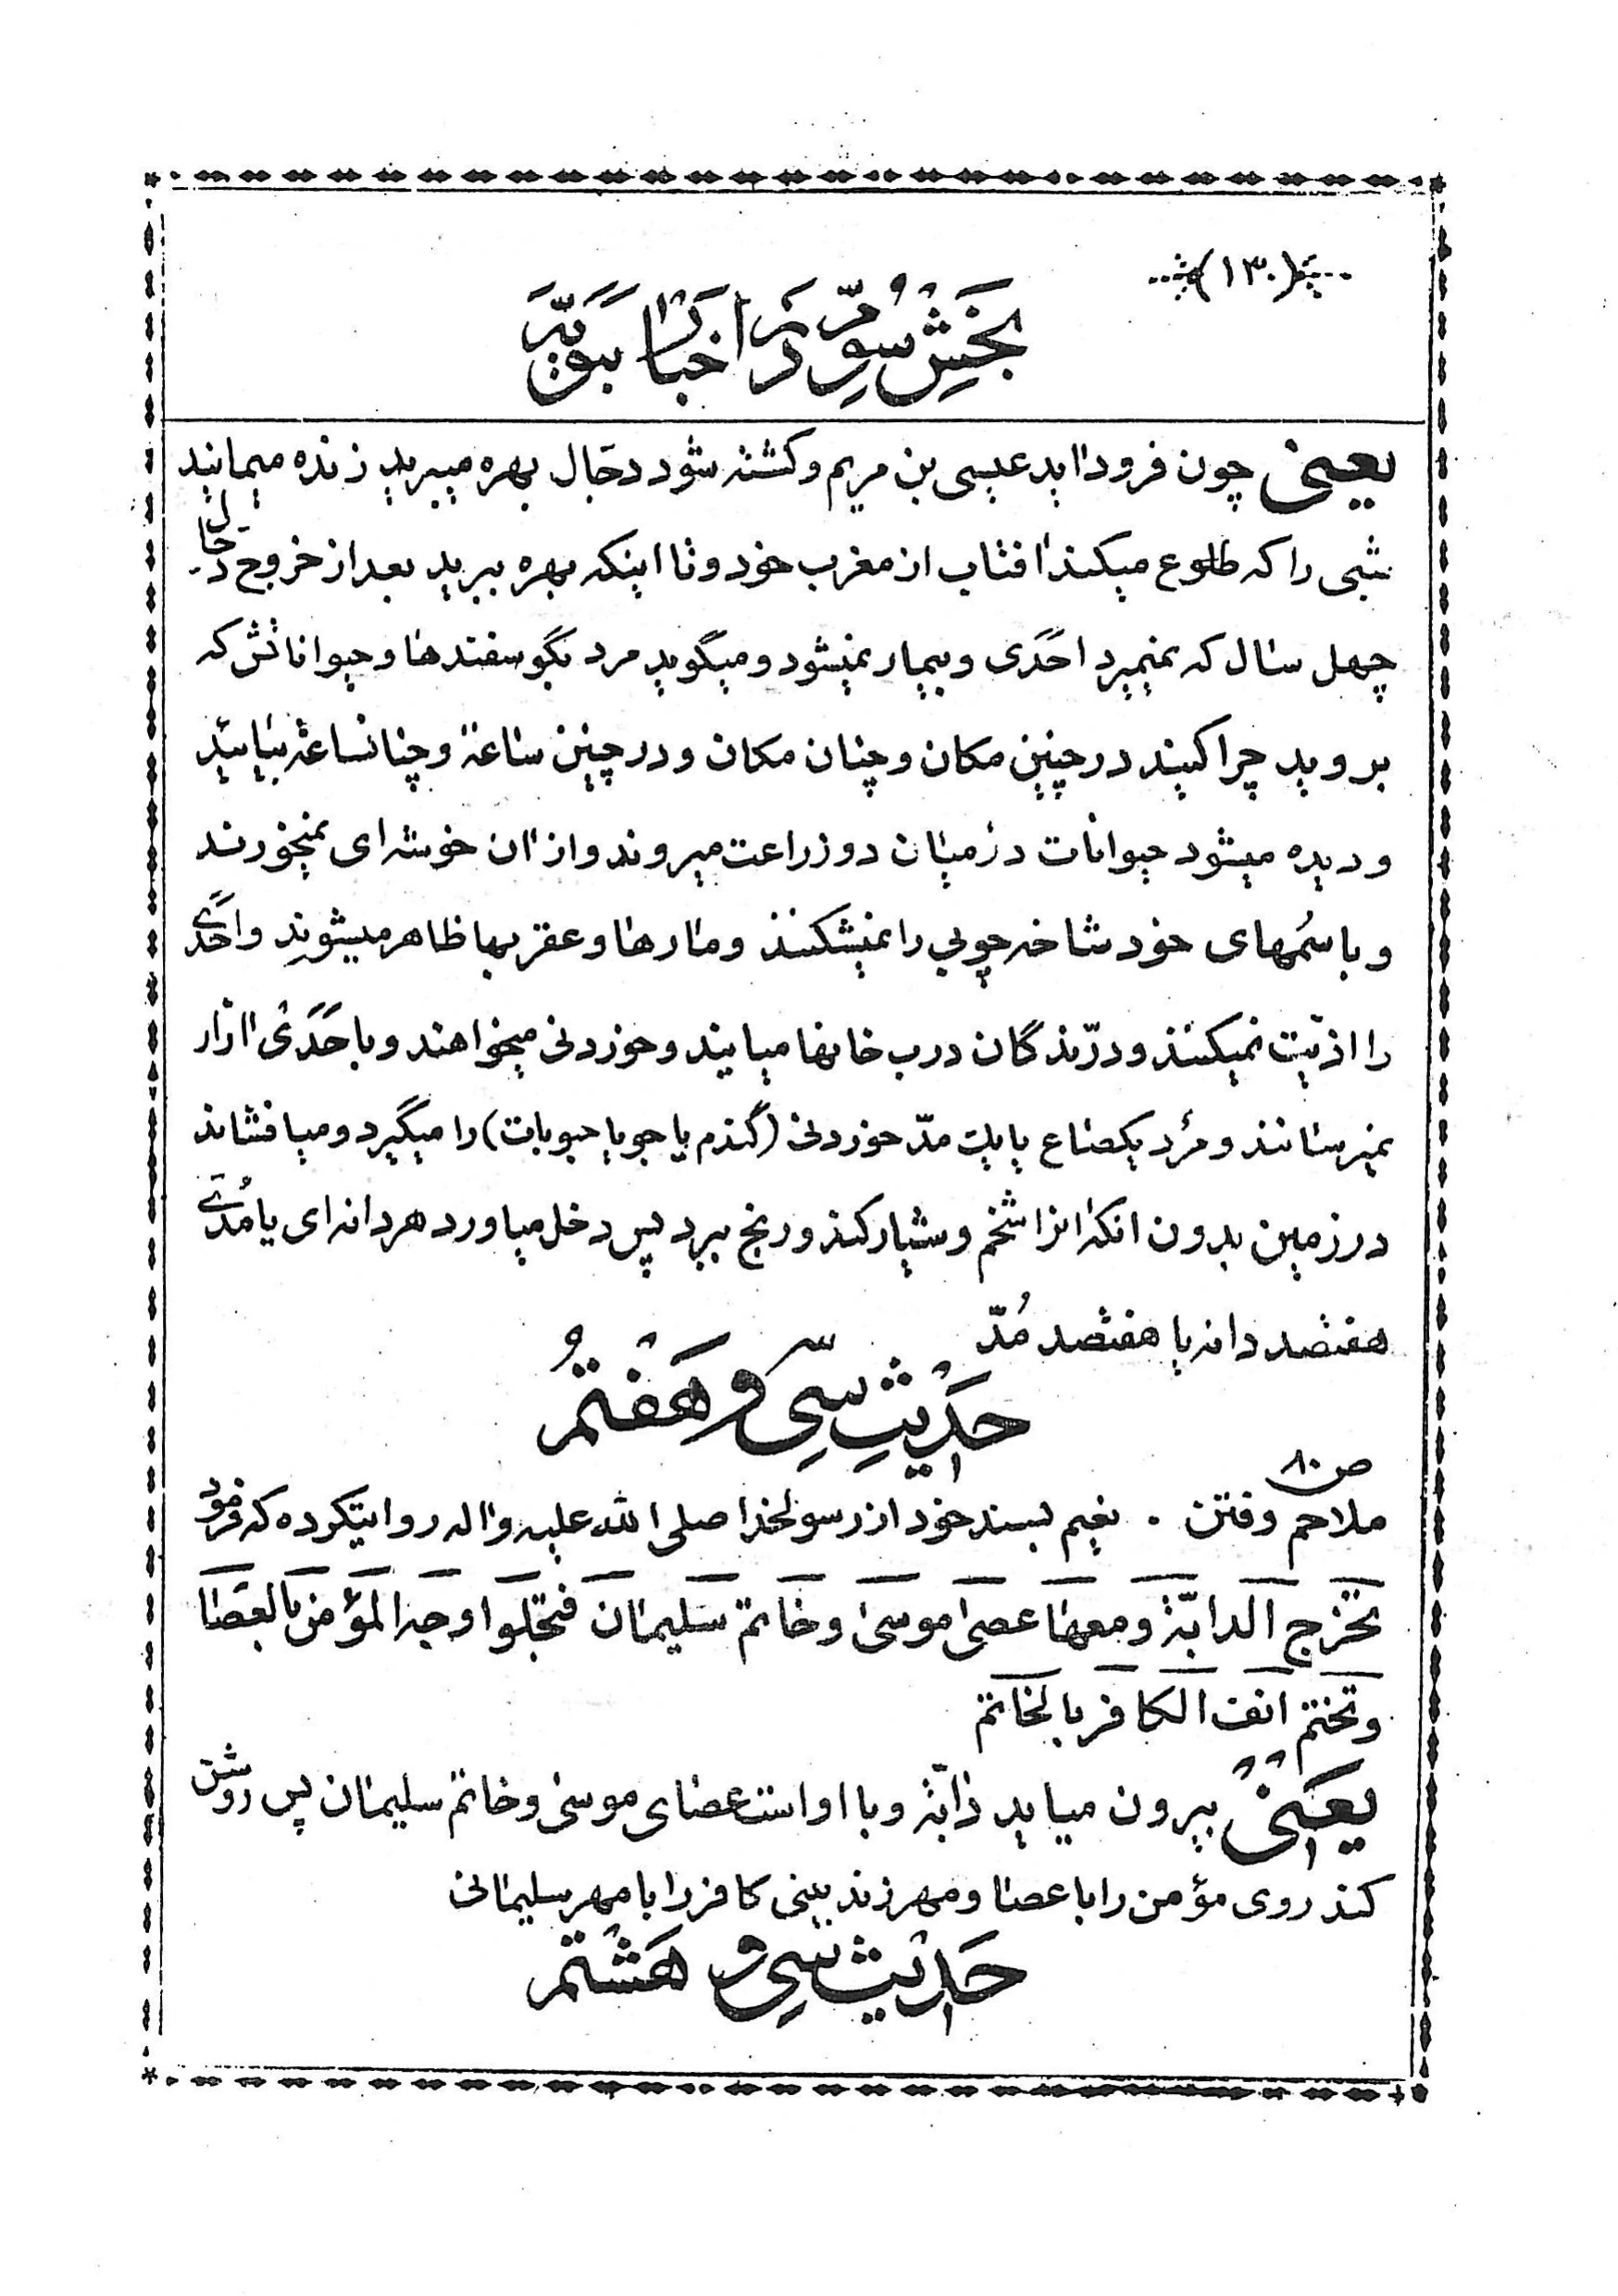 (۱۳۰)
بخش سوم در اخبار نبویه
یعنی چون فرود اید عیسی بن مریم و کشته شود دجال بهره میبرید زنده میمانید
شبی را که طلوع میکند افتاب از مغرب خود و تا اینکه بهره ببرید بعد از خروج دجال
چهل سال که نمیمیرد احدی و بیمار نمیشود و میگوید مرد بگوسفندها و حیواناتش که
بروید چرا کنید در چنین مکان و چنان مکان و در چنین ساعة و چنان ساعة بیایید
و دیده میشود حیوانات در میان دو زراعت میروند و از ان خوشه ای نمیخورند
و با سمهای خود شاخه چوبی را نمیشکنند و مارها و عقربها ظاهر میشوند و احدی
را اذیت نمیکنند و درندگان درب خانها میایند و خوردنی میخواهند و باحدی ازار
نمیرسانند و مرد یکصاع یا یک مد خوردنی (گندم یا جو یا حبوبات) را میگیرد و میافشاند
در زمین بدون انکه انرا شخم و شیار کند و رنج ببرد پس دخل میاورد هر دانه ای یا مدی
هفتصد دانه یا هفتصد مد
حدیث سی و هفتم
ملاحم و فتن ص ۸۰ . نعیم بسند خود از رسولخدا صلی الله علیه واله روایتکرده که فرمود
تخرج الدابة ومعها عصی موسی وخاتم سلیمان فتجلوا وجه المؤمن بالعصا
وتختم انف الکافر بالخاتم
یعنی بیرون میاید دابة و با او است عصای موسی و خاتم سلیمان پس روشن
کند روی مؤمن را با عصا و مهر زند بینی کافر را با مهر سلیمانی
حدیث سی و هشتم